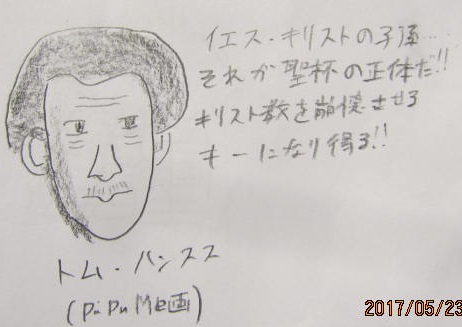 イエス・キリストの子孫…
それが聖杯の正体だ!!
キリスト教を崩壊させる
キーになり得る!!
トム・ハンクス
(PaPuMe画)
2017/05/23